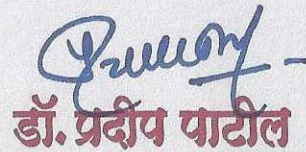 डॉ. प्रदीप पाटील